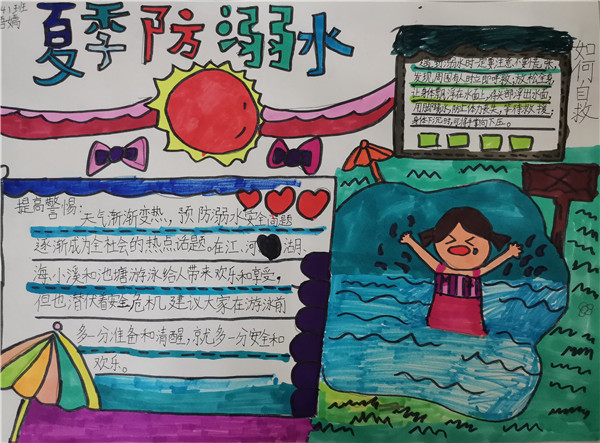 41班
夏季防溺水
如何自救
遇到溺水时一定要注意不要慌张,
发现周围有人时立即呼救;放松全身,
让身体飘浮在水面上,将头部浮出水面,
用脚踢水,防止体力丧失,等待救援;
身体下沉时,可将手掌向下压。
提高警惕:
天气渐渐变热,,预防溺水安全问题
逐渐成为全社会的热点话题。在江、河、湖、
海、小溪和池塘游泳给人带来欢乐和享受。
但也潜伏着安全危机,建议大家在游泳前
多一分准备和清醒,就多一分安全和
欢乐。